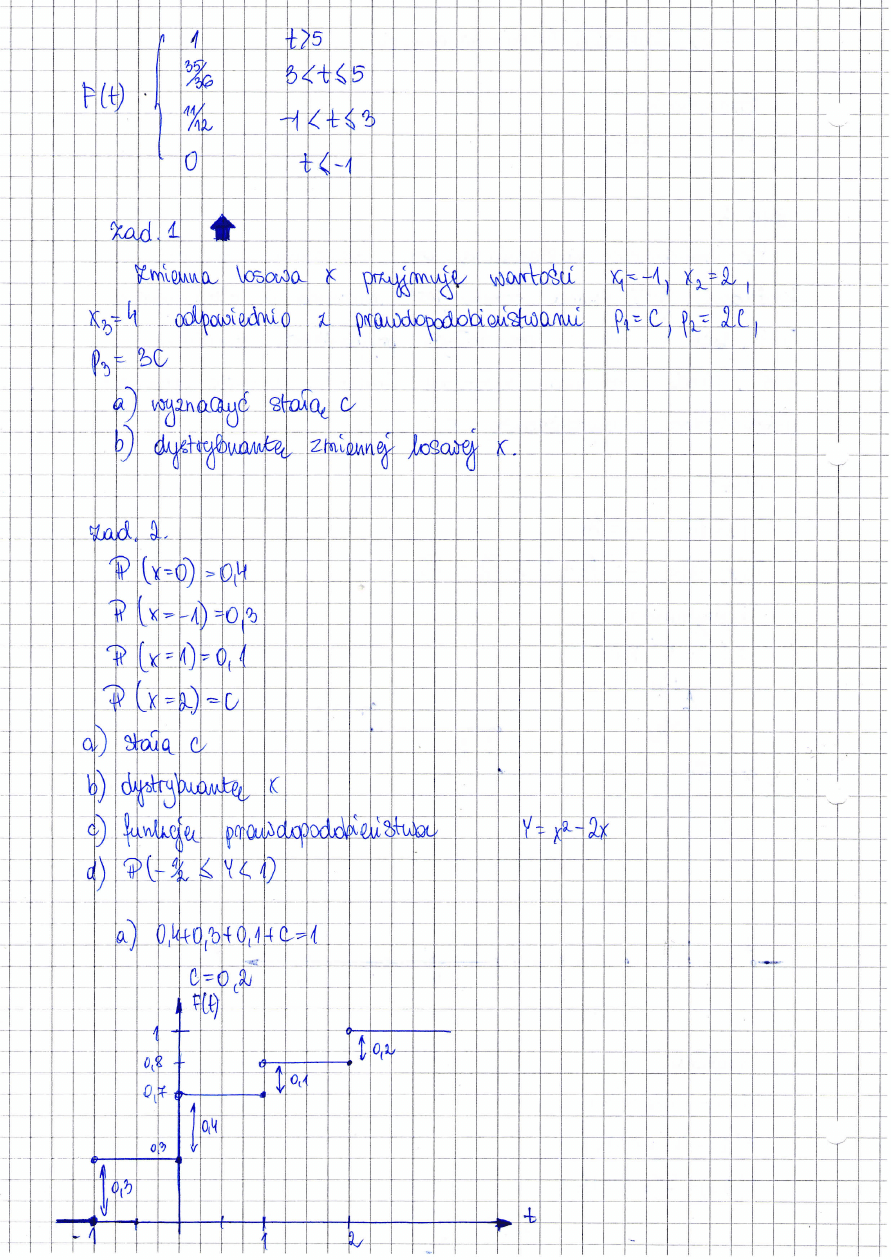 F(t) 1 t>5
35/36 3<t≤5
11/12 -1<t≤3
0 t≤-1
Zad. 1
Zmienna losowa x przyjmuję wartości x₁=-1, x₂=2,
x₃=4 odpowiednio z prawdopodobieństwami p₁=C, p₂=2C,
p₃=3C
a) wyznaczyć stałą c
b) dystrybuantę zmiennej losowej x.
Zad. 2.
P(x=0)=0,4
P(x=-1)=0,3
P(x=1)=0,1
P(x=2)=C
a) stałą c
b) dystrybuantę x
c) funkcję prawdopodobieństwa Y=x²-2x
d) P(-1/2 ≤ Y < 1)
a) 0,4+0,3+0,1+C=1
C=0,2
F(t)
1
0,2
0,8
0,1
0,7
0,4
0,3
0,3
t
-1 1 2